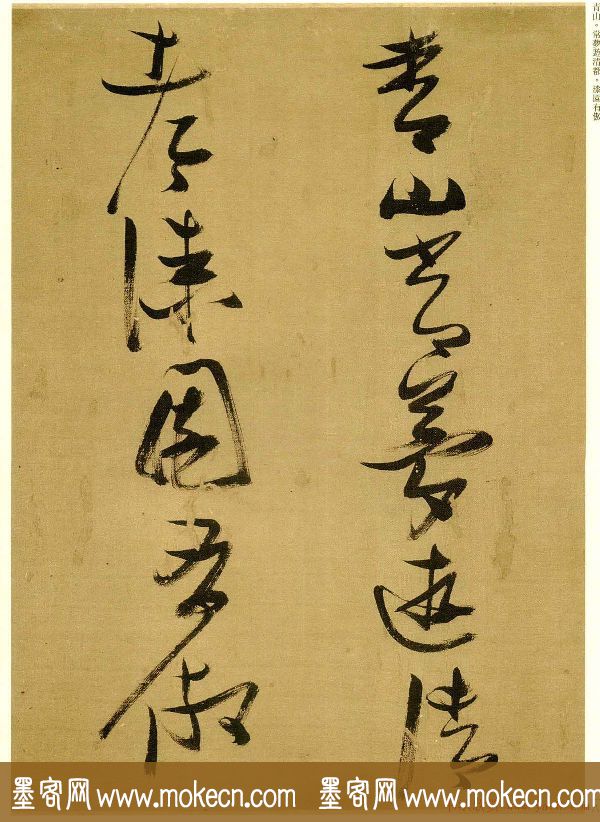 青山。常夢遊清都。漆園有傲
青山常夢遊清
都漆園有傲
墨客网 www.mokecn.com 墨客网 www.mokecn.com